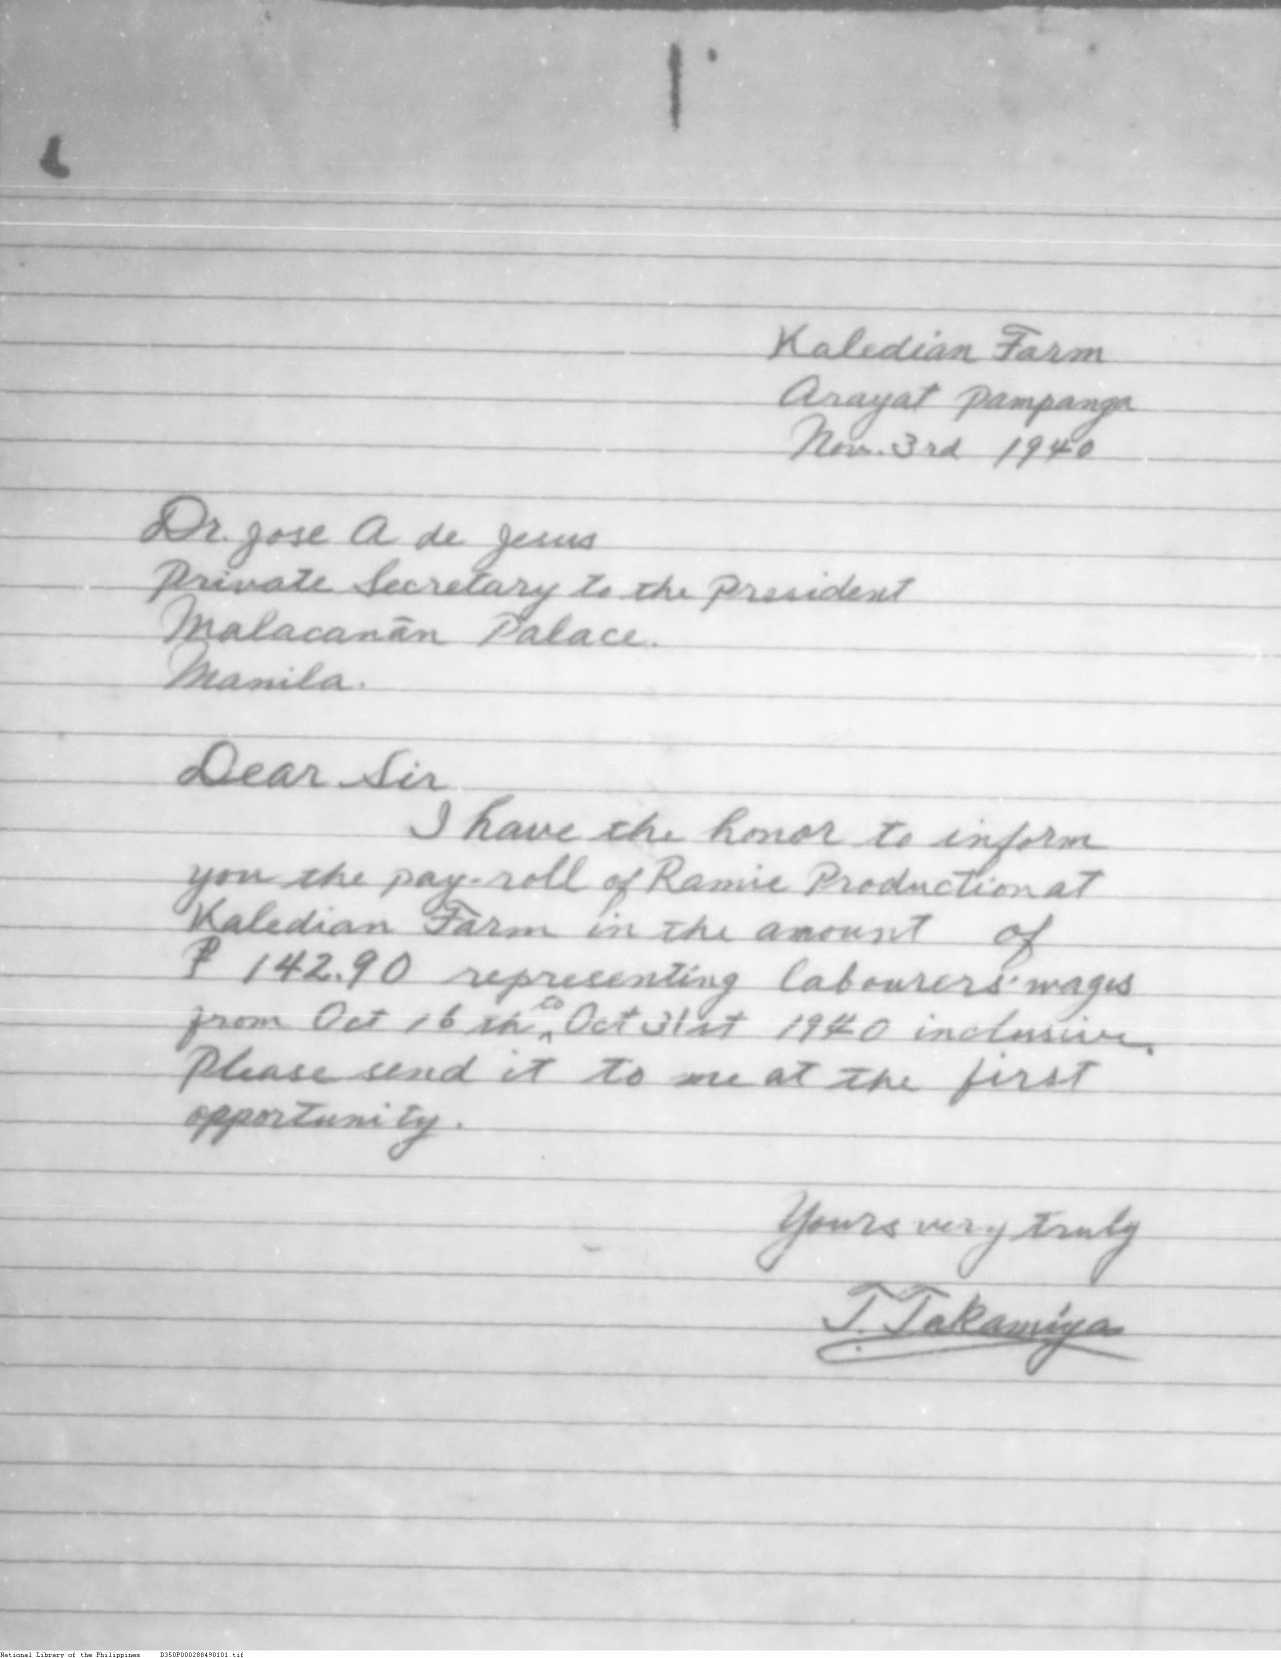 Kaledian Farm
Arayat Pampanga
Nov. 3rd 1940
Dr. Jose A de Jesus
Private Secretary to the President
Malacanān Palace.
Manila.
Dear Sir
I have the honor to inform
you the pay-roll of Ramie Production at
Kaledian Farm in the amount of
₱ 142.90 representing labourers' wages
from Oct 16 th to Oct 31st 1940 inclusive.
Please send it to me at the first
opportunity.
Yours very truly
T. Takamiya
National Library of the Philippines D350P000288498101.tif